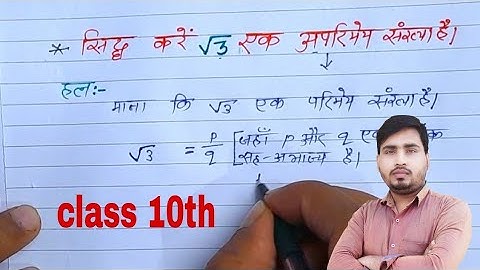 * सिद्ध करें √3 एक अपरिमेय संख्या है।
↓
हल:-
माना कि √3 एक परिमेय संख्या है।
√3 = p/q [जहाँ p और q
सह-अभाज्य है।
class 10th